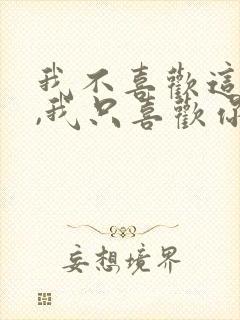 我不喜歡這
,我只喜歡你
妄想境界